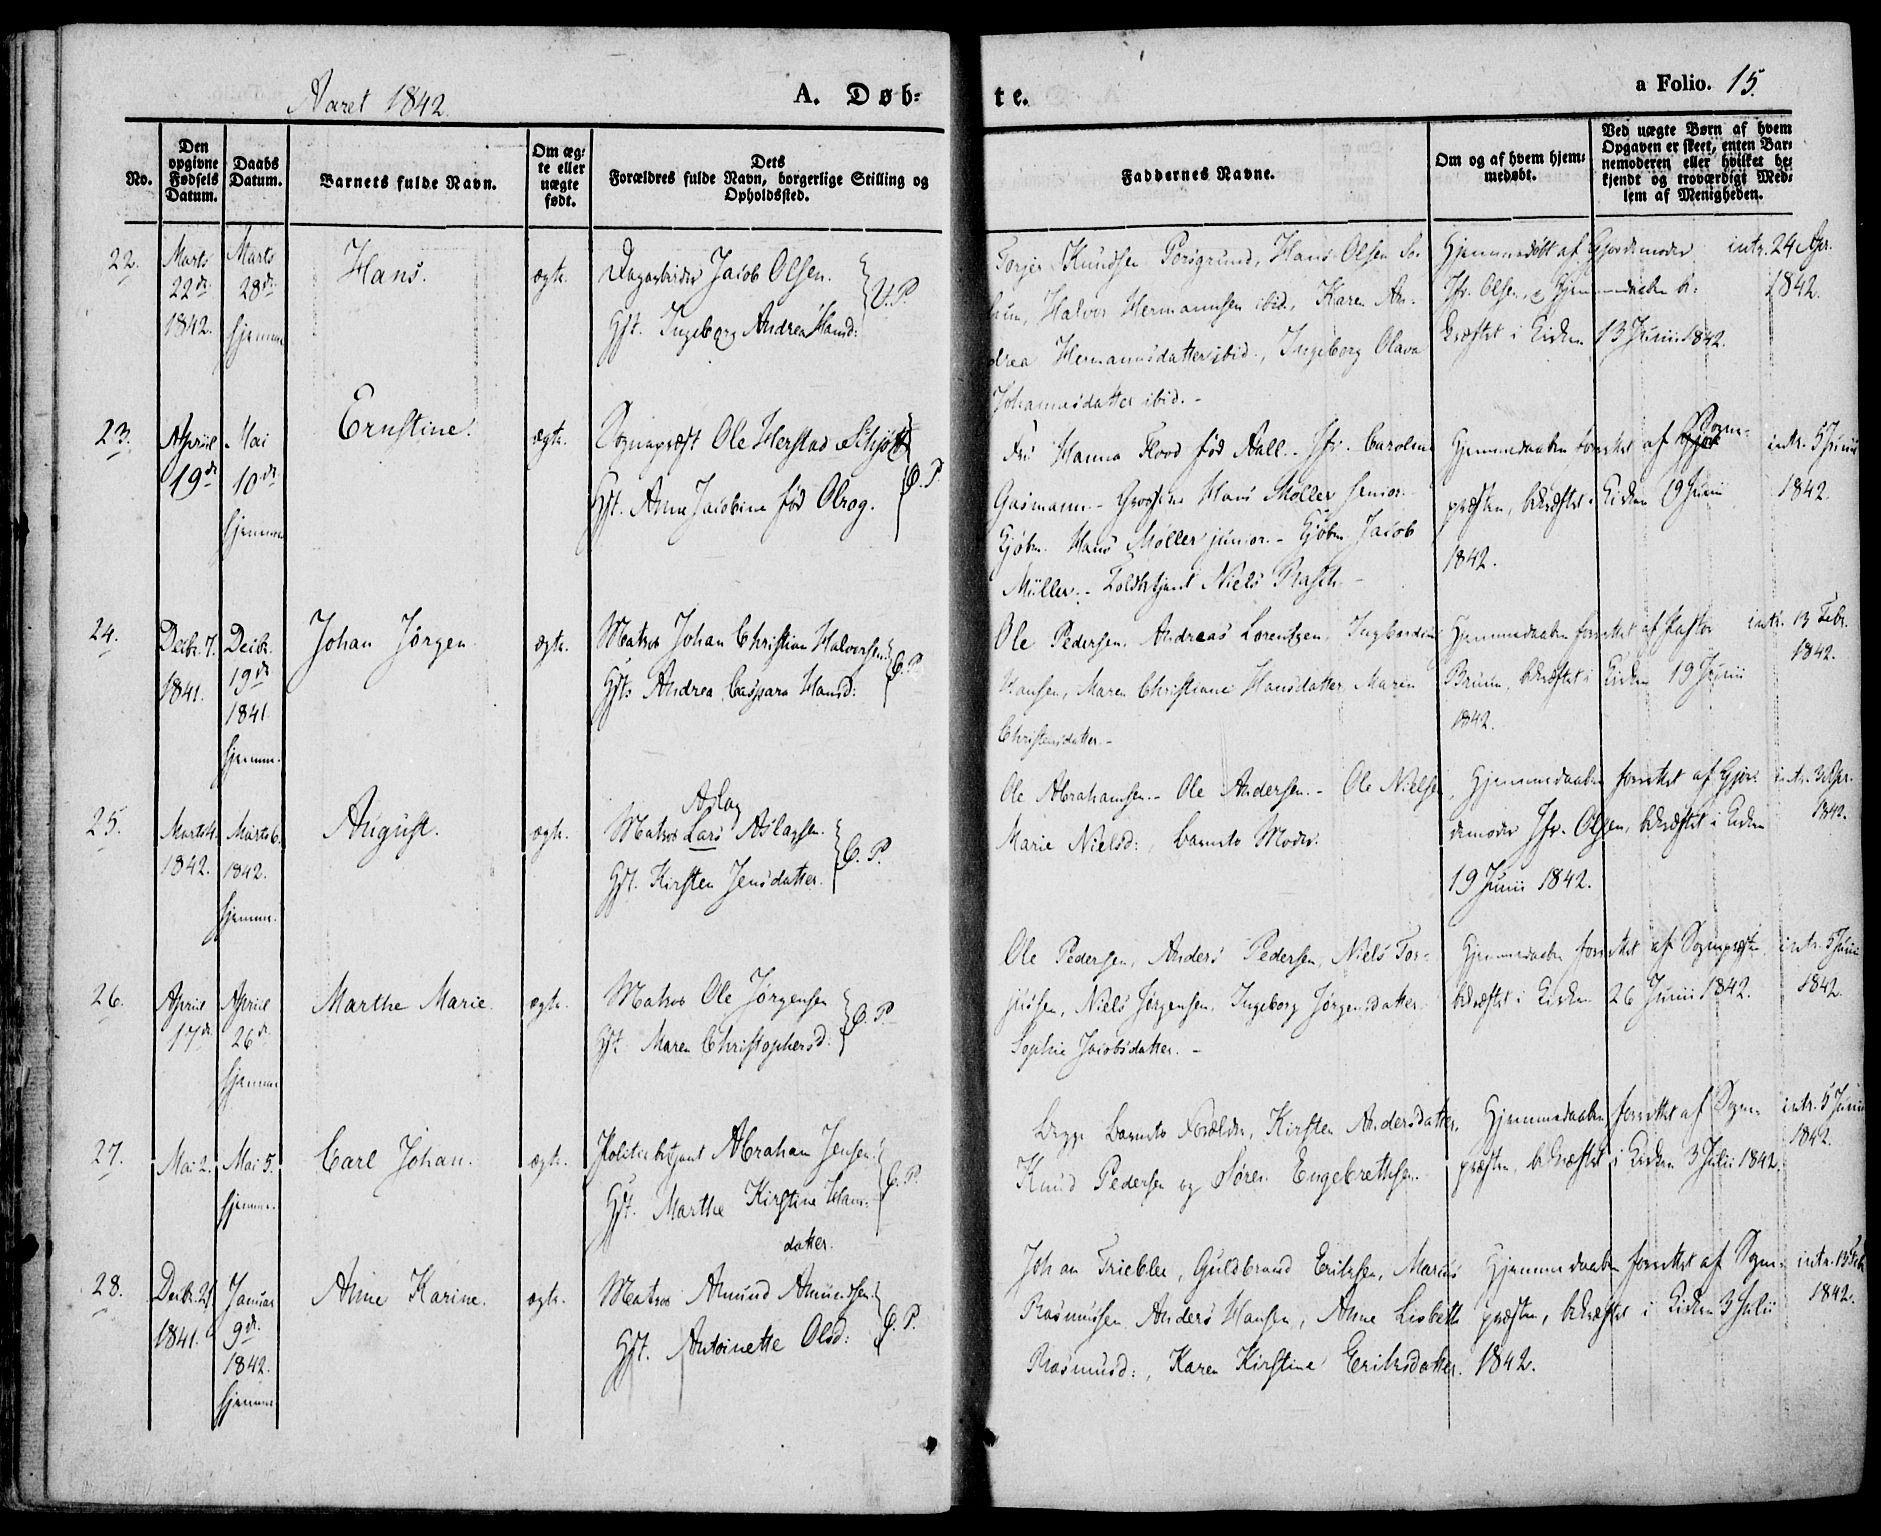 Aaret 1842.
A. Døb=
te.
a Folio. 15.
No.
Den opgivne Fødsels Datum.
Daabs Datum.
Barnets fulde Navn.
Om æg=
te eller
uægte
født.
Dets
Forældres fulde Navn, borgerlige Stilling og
Opholdssted.
Faddernes Navne.
Om og af hvem hjem=
medøbt.
Ved uægte Børn af hvem
Opgaven er skeet, enten Bar=
nemoderen eller hvilket be=
kjendt og troværdigt Med=
lem af Menigheden.
22.
Marts
22de
1842.
Marts
28de
hjemme
Hans.
ægte.
Dagarbeider Jacob Olsen.
Hst. Ingeborg Andrea Hansd:
V. P.
Torger Knudsen Porsgrund, Hans Olsen
Halvor Hermannsen ibid, Karen An-
drea Hermannsdatter ibid., Ingeborg Olava
Johannesdatter ibid. -
Hjemmedøbt af Gjordemoder
Jfr. Olsen, Hjemmedaaben be-
kræftet i Kirken 13 Junii 1842.
intr. 24 Apr.
1842.
23.
April
19de
Mai
10de
hjemme
Ernstine.
ægte.
Sognepræst Ole Herstad Schjøtt
Hst. Anne Jacobine fød Olrog.
Ø. P.
Fru Hanna Flood fød Aall. - Jfr. Caroline
Gasmann - Grosserer Hans Møller senior. -
Kjøbm. Hans Møller junior. - Kjøbm. Jacob
Müller. - Toldbetjent Niels Rasch. -
Hjemmedaaben forrettet af Sogne-
præsten, bekræftet i Kirken 19 Junii
1842.
intr. 5 Junii
1842.
24.
Decbr. 7.
1841.
Decbr.
19de
1841
hjemme.
Johan Jørgen.
ægte.
Matros Johan Christian Halvorsen.
Hst. Andrea Caspara Hansd:
Ø. P.
Ole Pedersen, Andreas Lorentzen,
Hansen, Maren Christiane Hansdatter, Maren
Christensdatter. -
Hjemmedaaben forrettet af Pastor
Bruun, bekræftet i Kirken 19 Junii
1842.
intr. 13 Febr.
1842.
25.
Marts 4.
1842.
Marts 6.
1842.
hjemme.
August.
ægte.
Aslag
Matros Lars Aslagsen.
Hst. Kirsten Jensdatter.
Ø. P.
Ole Abrahamsen. - Ole Andersen. - Ole Nielsen,
Marie Nielsd:, Barnets Moder.
Hjemmedaaben forrettet af Gjor-
demoder Jfr. Olsen, bekræftet i Kirken
19 Junii 1842.
intr. 3 Apr.
1842.
26.
April
17de
April
26de
hjemme
Marthe Marie.
ægte.
Matros Ole Jørgensen
Hst. Maren Christophersd:
Ø. P.
Ole Pedersen, Anders Pedersen, Niels Tor-
jussen, Niels Jørgensen, Ingeborg Jørgensdatter
Sophie Jacobsdatter. -
Hjemmedaaben forrettet af Sognepræsten,
bekræftet i Kirken 26 Junii 1842.
intr. 5 Junii
1842.
27.
Mai 2.
Mai 5.
hjemme.
Carl Johan.
ægte.
Politiebetjent Abraham Jensen.
Hst. Marthe Kirstine Hans-
datter.
Ø. P.
Begge Barnets Forældre, Kirsten Andersdatter,
Knud Pedersen og Søren Engebrethsen.
Hjemmedaaben forrettet af Sogne-
præsten, bekræftet i Kirken 3 Julii 1842.
intr. 5 Junii
1842.
28.
Decbr. 21
1841.
Januar
9de
1842.
hjemme
Anne Karine.
ægte.
Matros Amund Amundsen.
Hst. Antoinette Olsd:
Ø. P.
Johan Triebler, Guldbrand Eriksen, Marius
Rasmussen, Anders Hansen, Anne Lisbeth
Rasmusd:, Karen Kirstine Eriksdatter.
Hjemmedaaben forrettet af Sogne-
præsten, bekræftet i Kirken 3 Julii
1842.
intr. 13 Feb
1842.